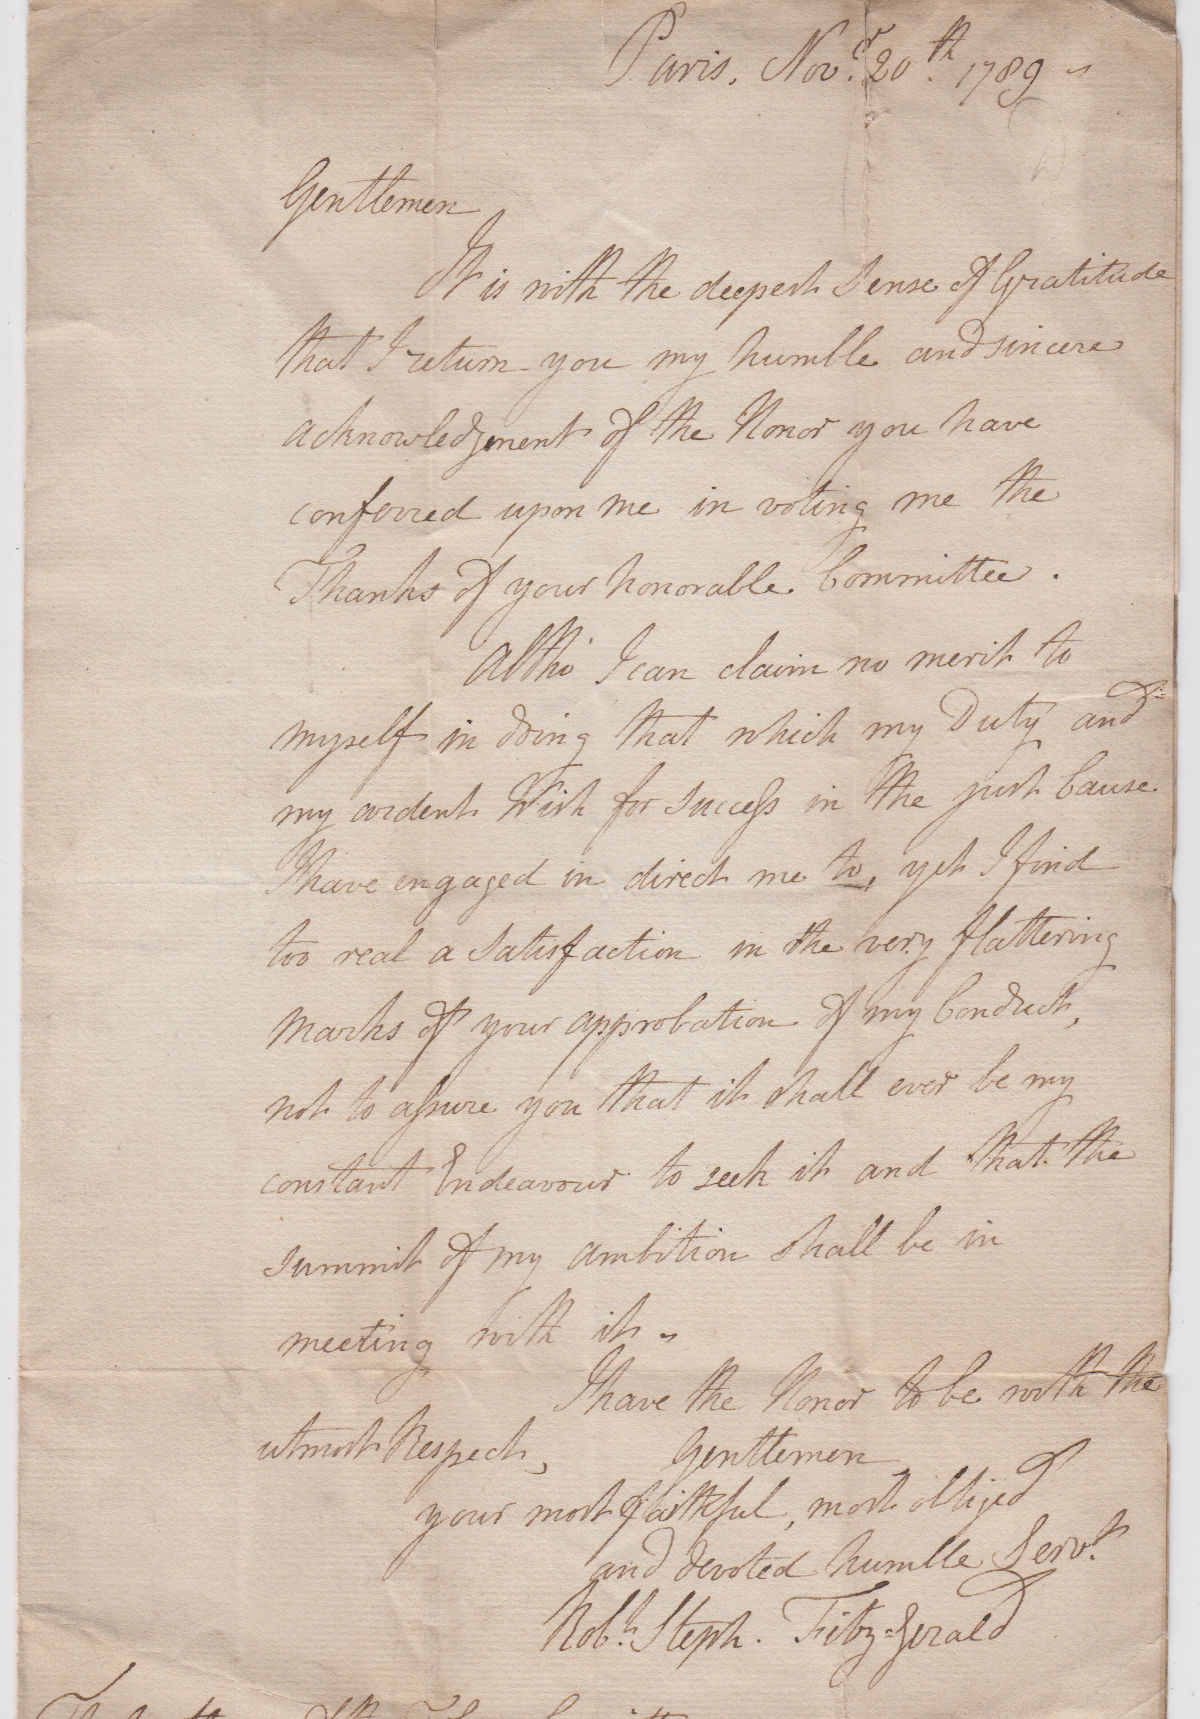 Paris. Nov.r 20.th 1789
Gentlemen
It is with the deepest Sense of Gratitude
that I return you my humble and sincere
acknowledgment of the Honor you have
conferred upon me in voting me the
Thanks of your honorable Committee.
Altho' I can claim no merit to
myself in doing that which my Duty and
my ardent Wish for Success in the just Cause
I have engaged in direct me to, yet I find
too real a satisfaction in the very flattering
Marks of your approbation of my Conduct,
not to assure you that it shall ever be my
constant Endeavour to seek it and that the
summit of my ambition shall be in
meeting with it.
I have the Honor to be with the
utmost Respect,
Gentlemen
your most faithful, most obliged
and devoted humble Serv.t
Rob.t Steph. Fitz=Gerald